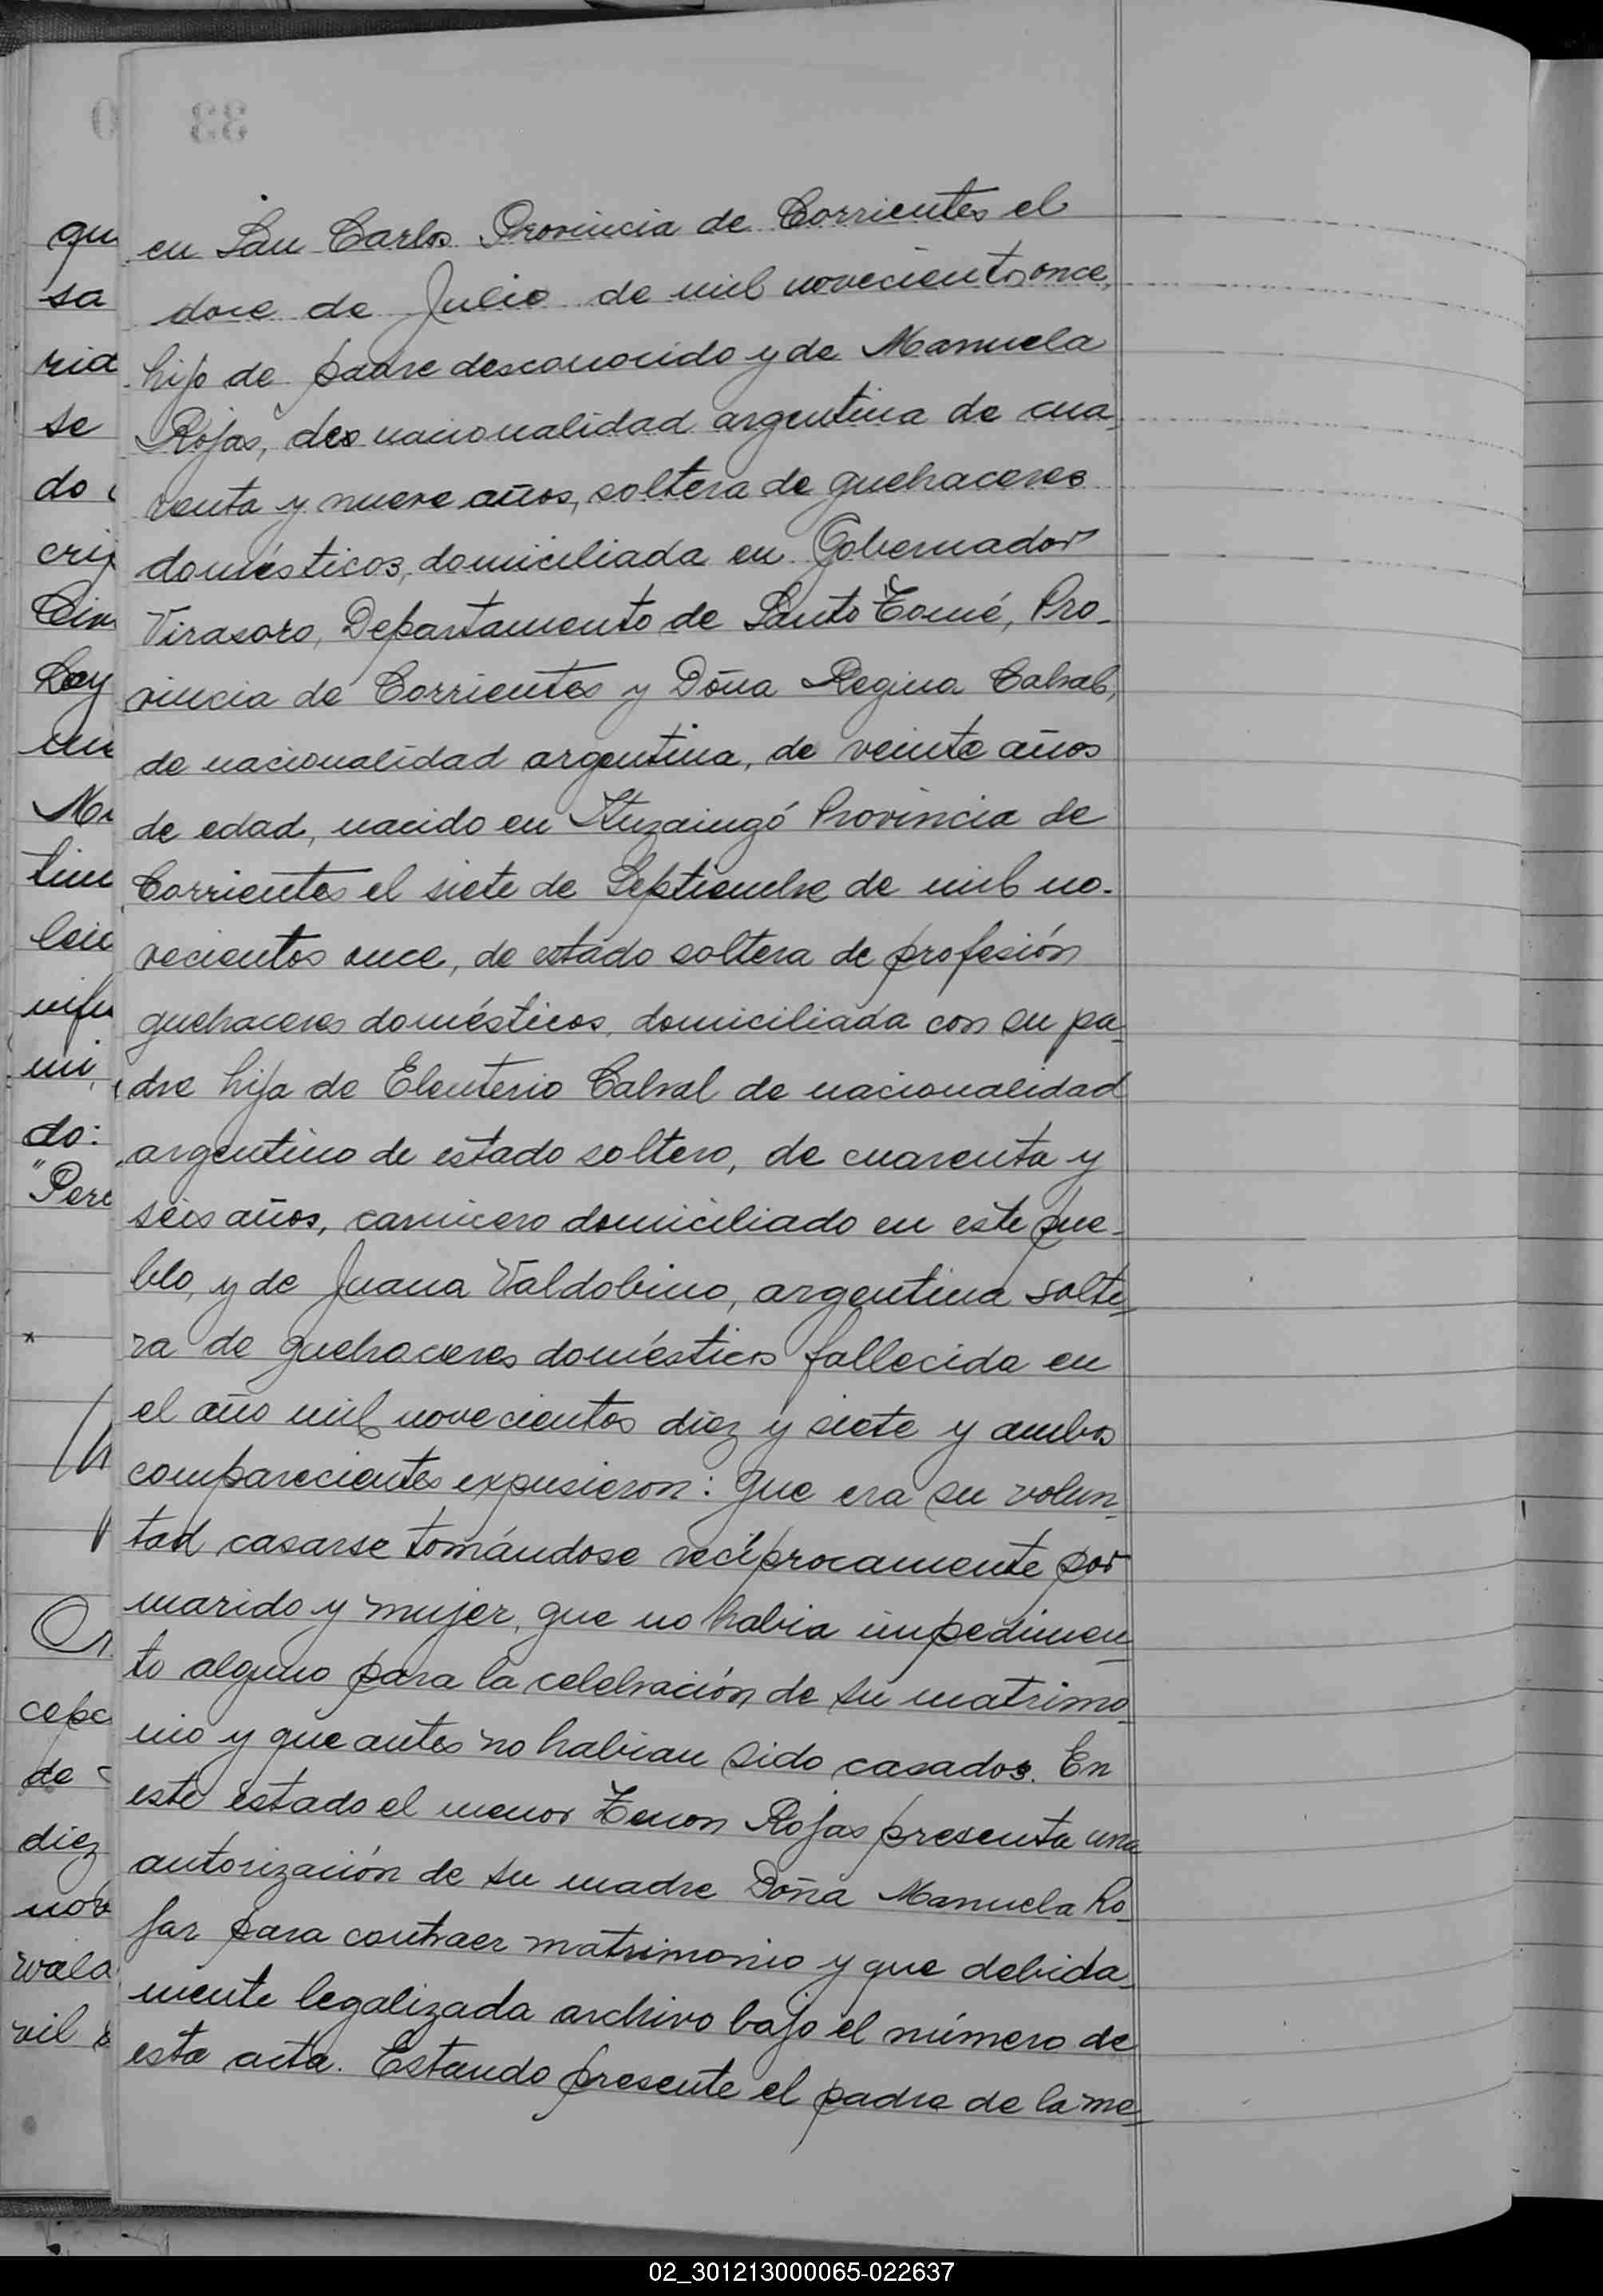 en San Carlos Provincia de Corrientes el
doce de Julio de mil novecientos once,
hijo de padre desconocido y de Manuela
Rojas, de nacionalidad argentina de cua-
renta y nueve años, soltera de quehaceres
domésticos, domiciliada en Gobernador
Virasoro, Departamento de Santo Tomé, Pro-
vincia de Corrientes y Doña Regina Cabral,
de nacionalidad argentina, de veinte años
de edad, nacido en Ituzaingó Provincia de
Corrientes el siete de Septiembre de mil no-
vecientos once, de estado soltera de profesión
quehaceres domésticos, domiciliada con su pa-
dre hija de Eleuterio Cabral de nacionalidad
argentino de estado soltero, de cuarenta y
seis años, carnicero domiciliado en este pue-
blo, y de Juana Valdobino, argentina solte-
ra de quehaceres domésticos fallecida en
el año mil novecientos diez y siete y ambos
comparecientes expusieron: que era su volun-
tad casarse tomándose recíprocamente por
marido y mujer, que no habia impedimen-
to alguno para la celebración de su matrimo-
nio y que antes no habian sido casados. En
este estado el menor Zenon Rojas presenta una
autorización de su madre Doña Manuela Ro-
jas para contraer matrimonio y que debida-
mente legalizada archivo bajo el número de
esta acta. Estando presente el padre de la me-
02_301213000065-022637